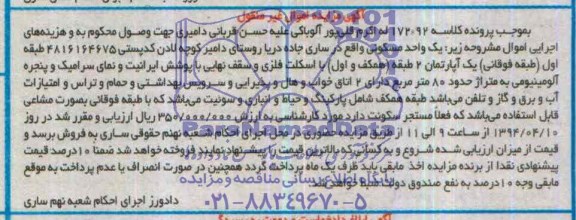 آگهی مزایده اموال غیر منقول
بموجب پرونده کلاسه ۱۷۲۰۹۲ له اکرم قلی‌پور آلوباکی علیه حسن قربانی دامیری جهت وصول محکوم به و هزینه‌های
اجرایی اموال مشروحه زیر: یک واحد مسکونی واقع در ساری جاده دریا روستای دامیر کوچه لادن کدپستی ۴۸۱۶۱۶۴۶۷۵ طبقه
اول (طبقه فوقانی) یک آپارتمان ۲ طبقه (همکف و اول) با اسکلت فلزی و سقف نهایی با پوشش ایرانیت و نمای سرامیک و پنجره
آلومینیومی به متراژ حدود ۸۰ متر مربع دارای ۲ اتاق خواب و هال و پذیرایی و سرویس بهداشتی و حمام و تراس و امتیازات
آب و برق و گاز و تلفن می‌باشد طبقه همکف شامل پارکینگ و حیاط و انباری و سوئیت می‌باشد که با طبقه فوقانی بصورت مشاعی
قابل استفاده می‌باشد که فعلا مستجر سکونت دارد مورد کارشناسی به ارزش ۳۵۰/۰۰۰/۰۰۰ ریال ارزیابی و مقرر شد در روز
۱۳۹۴/۰۴/۱۰ از ساعت ۹ الی ۱۱ از طریق مزایده حضوری در محل اجرای احکام شعبه نهم حقوقی ساری به فروش برسد و
قیمت از میزان ارزیابی شده شروع و به کسانی‌که بالاترین قیمت را پیشنهاد نمایند فروخته خواهد شد ضمنا ۱۰ درصد قیمت
پیشنهادی نقدا از برنده مزایده اخذ مابقی باید ظرف یک ماه پرداخت گردد همچنین در صورت انصراف یا عدم پرداخت به موقع
مابقی وجه ۱۰ درصد به نفع صندوق دولت ضبط خواهد شد
دادورز اجرای احکام شعبه نهم ساری
پایگاه اطلاع رسانی مناقصه و مزایده
۰۲۱-۸۸۳۴۹۶۷۰-۵